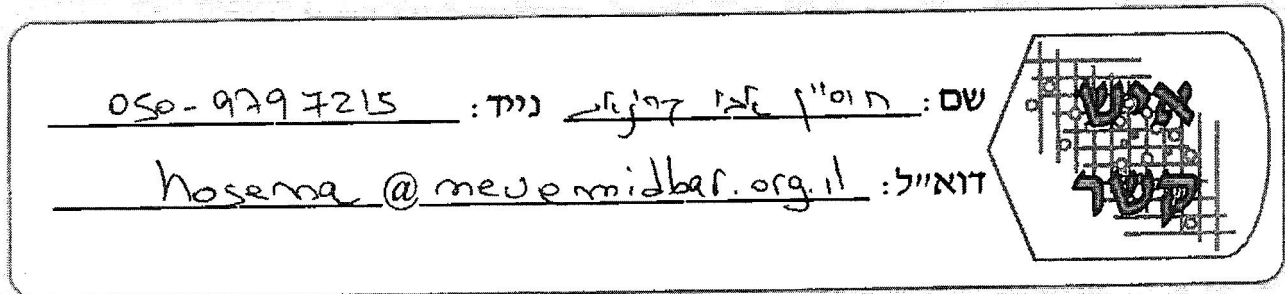 איש
קשר
שם: חוסיין אבו נייד: 050-9797215
דוא״ל: hosenna@nevemidbar.org.il